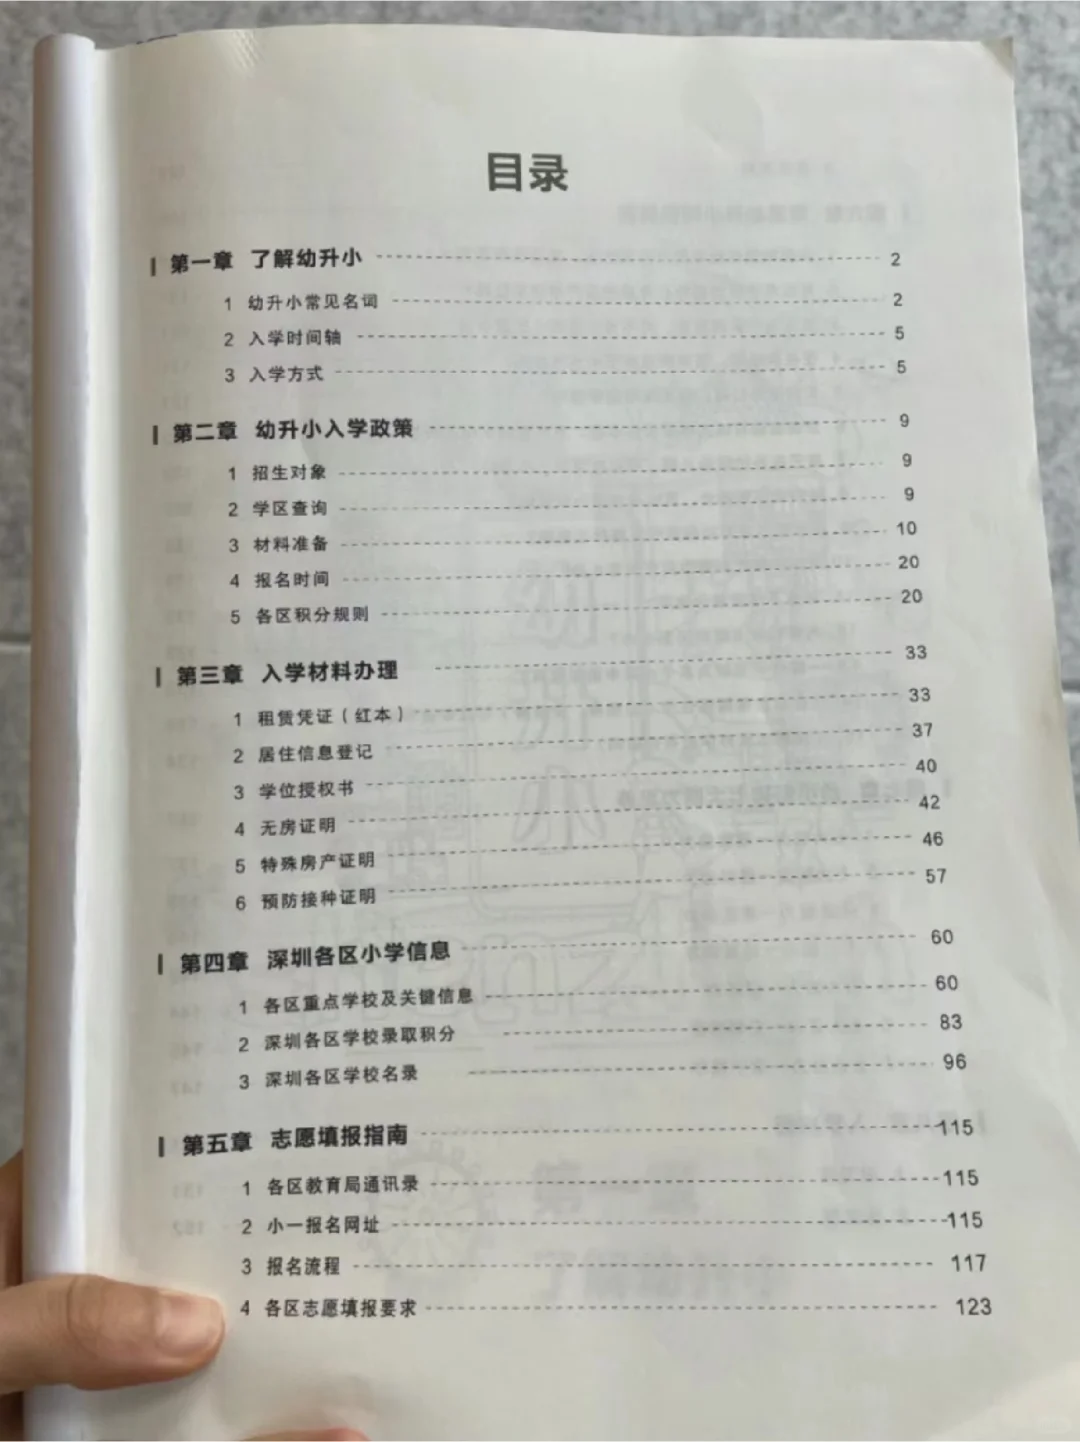 目录
第一章 了解幼升小 2
1 幼升小常见名词 2
2 入学时间轴 5
3 入学方式 5
第二章 幼升小入学政策 9
1 招生对象 9
2 学区查询 9
3 材料准备 10
4 报名时间 20
5 各区积分规则 20
第三章 入学材料办理 33
1 租赁凭证（红本） 33
2 居住信息登记 37
3 学位授权书 40
4 无房证明 42
5 特殊房产证明 46
6 预防接种证明 57
第四章 深圳各区小学信息 60
1 各区重点学校及关键信息 60
2 深圳各区学校录取积分 83
3 深圳各区学校名录 96
第五章 志愿填报指南 115
1 各区教育局通讯录 115
2 小一报名网址 115
3 报名流程 117
4 各区志愿填报要求 123